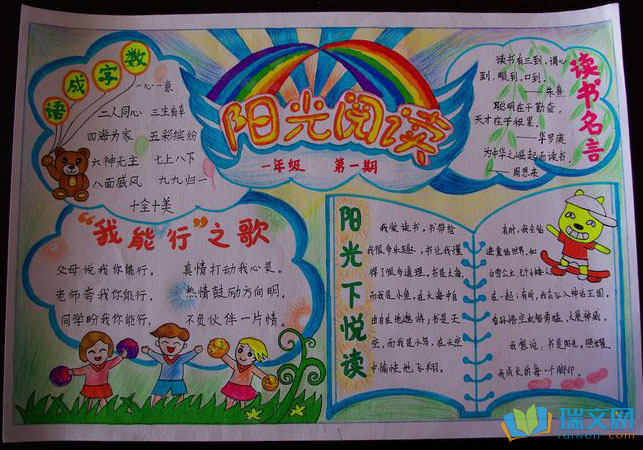 阳光阅读
一年级 第一期
数字成语
一心一意
二人同心 三生有幸
四海为家 五彩缤纷
六神无主 七上八下
八面威风 九九归一
十全十美
读书名言
读书有三到，谓心
到，眼到，口到。
——朱熹
聪明在于勤奋，
天才在于积累。
——华罗庚
为中华之崛起而读书。
——周恩来
“我能行”之歌
父母说我你能行， 真情打动我心灵。
老师夸我你能行， 热情鼓励方向明。
同学盼我你能行， 不负伙伴一片情
阳光下悦读
我爱读书，书带给
我很多乐趣，书让我懂
得了很多道理。书是大海，
而我是小鱼，在大海中自
由自在地遨游；书是天
空，而我是小鸟，在天空
中愉快地飞翔。
有时，我会钻
进童话世界，和
白雪公主、七个小矮人
在一起；有时，我会飞入神话王国，
看孙悟空
我想说，书是阳光，照耀
我成长的每一个脚印。
瑞文网
ruiwen.com